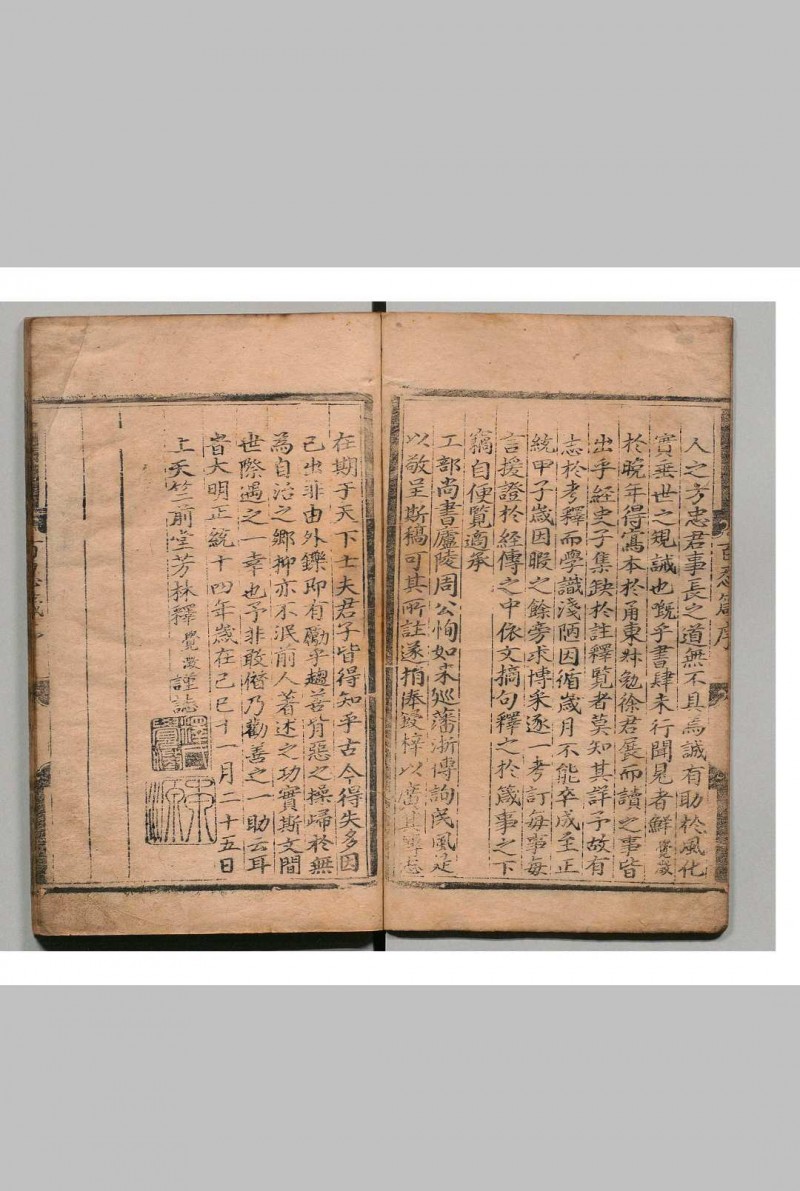 人之方忠君事長之道無不具焉誠有助於風化
實乗世之規誡也嘅乎書肆未行聞見者鮮覺澂
於晚年得寫本於甬東姝勉徐君展而讀之事皆
出乎經史子集缺於註釋覽者莫知其詳予故有
志於考釋而學識淺陋因循歲月不能卒成至正
統甲子歲因暇之餘旁求博采逐一考訂每事每
言援證於經傳之中依文摘句釋之於箴事之下
竊自便覽適承
工部尚書廬陵周公恂如來廵藩浙傳詢民風是
以敬呈斯稿可其所註遂捐俸受梓以廣其專志
百忍箴序
在期于天下士夫君子皆得知乎古今得失多因
己出非由外鑠即有勵乎趨善背惡之操歸於無
為自治之鄉抑亦不泯前人著述之功實斯文間
世際遇之一幸也予非敢僭乃勸善之一助云耳
旹大明正統十四年歲在己巳十一月二十五日
上天竺前堂芳林釋 覺澂 謹誌